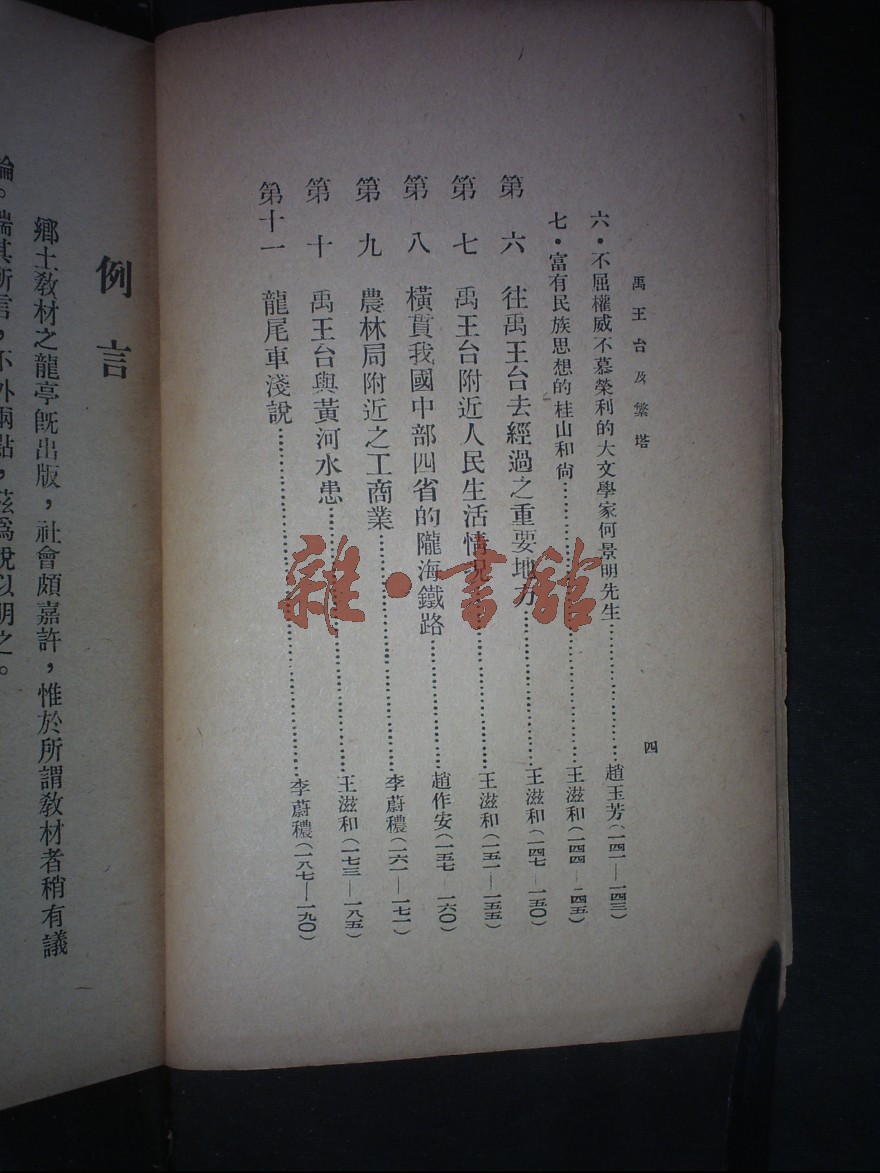 禹王台及繁塔
四
六・不屈權威不慕榮利的大文學家何景明先生………………趙玉芳(一四一—一四三)
七・富有民族思想的桂山和尙………………王滋和(一四四—二四五)
第六　往禹王台去經過之重要地方………………王滋和(一四七—一五〇)
第七　禹王台附近人民生活情況………………王滋和(一五一—一五五)
第八　橫貫我國中部四省的隴海鐵路………………趙作安(一五七—一六〇)
第九　農林局附近之工商業………………李蔚穠(一六一—一七一)
第十　禹王台與黃河水患………………王滋和(一七三—一八五)
第十一　龍尾車淺說………………李蔚穠(一八七—一九〇)
雜・書舘
例言
鄉土敎材之龍亭旣出版，社會頗嘉許，惟於所謂敎材者稍有議
論。揣其所言，不外兩點，茲爲說以明之。